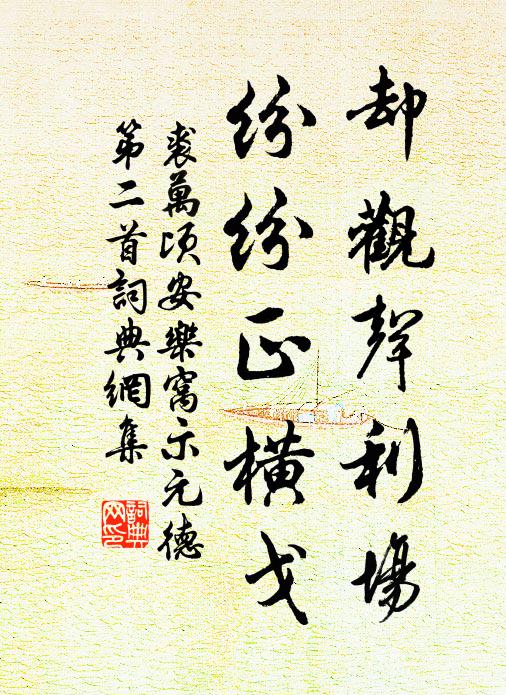 却觀聲利場
紛紛正橫戈
裘萬頃安樂窩示元德
第二首詞典網集
詞典
网印